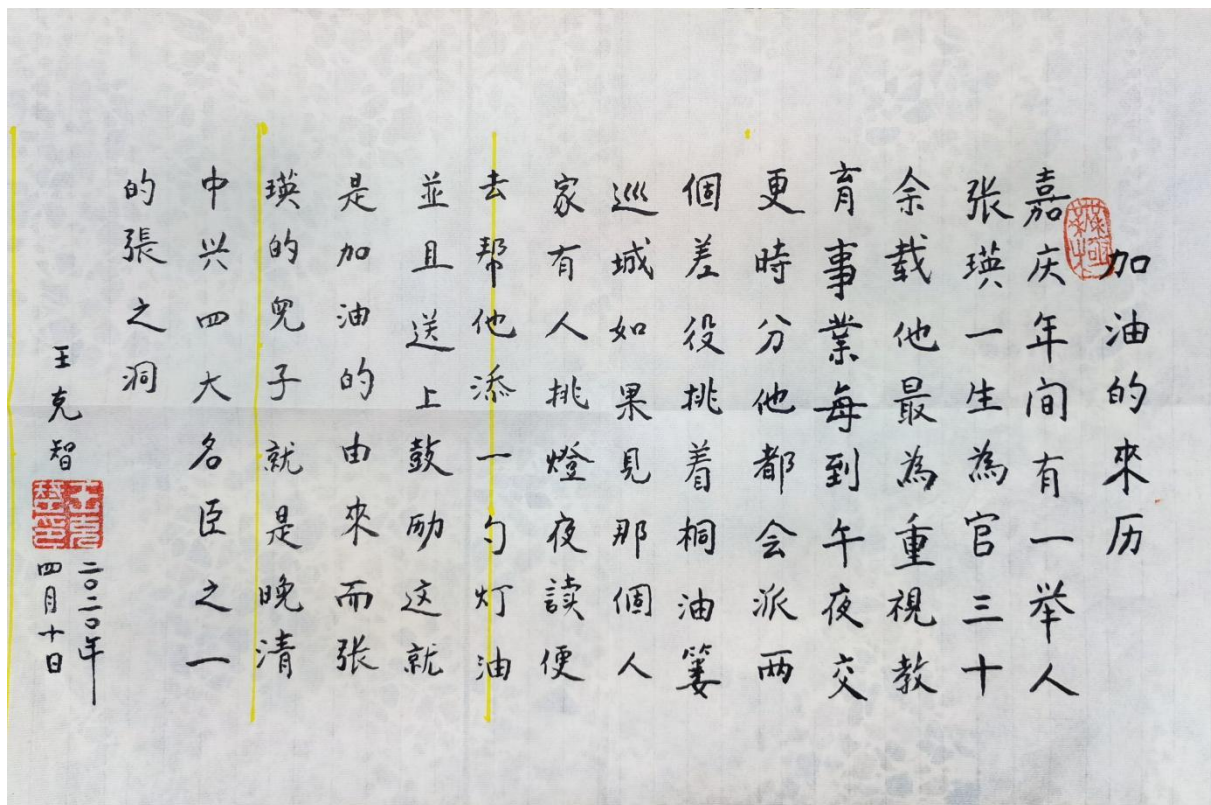 加油的來历
嘉庆年间有一举人
张瑛一生為官三十
余载他最為重視教
育事業每到午夜交
更時分他都会派两
個差役挑着桐油篓
巡城如果見那個人
家有人挑燈夜讀便
去帮他添一勺灯油
並且送上鼓励这就
是加油的由來而张
瑛的兒子就是晚清
中兴四大名臣之一
的張之洞
王克智
二〇二〇年
四月十日
王克
智印